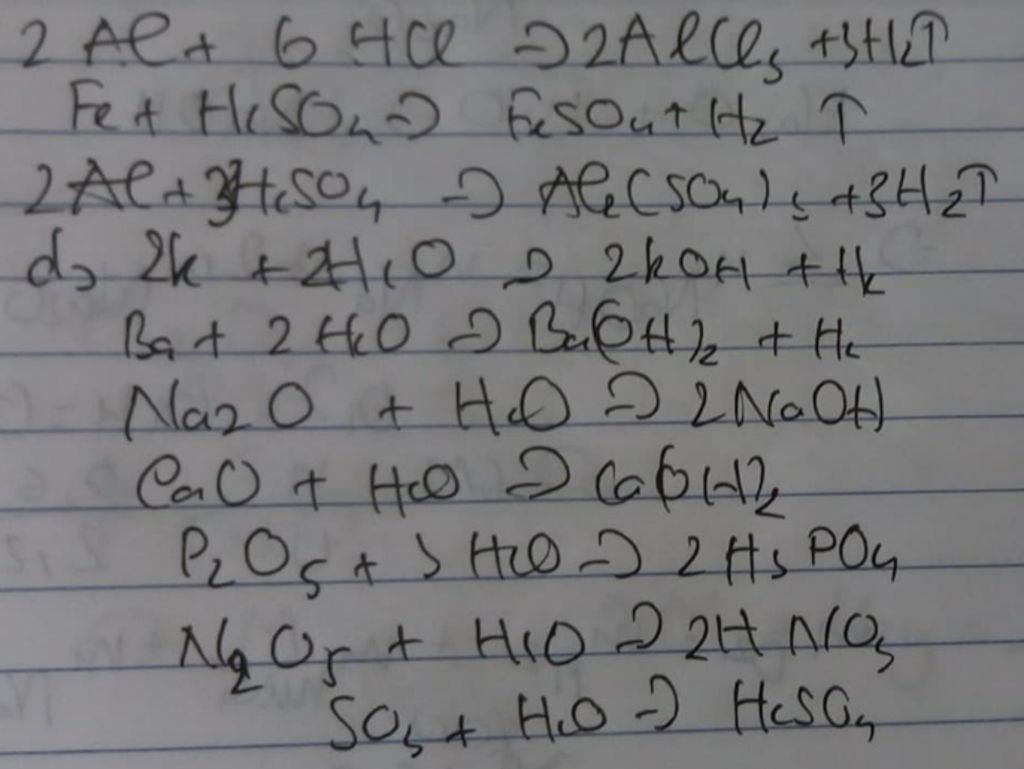 2Al + 6HCl → 2AlCl₃ + 3H₂↑
Fe + H₂SO₄ → FeSO₄ + H₂ ↑
2Al + 3H₂SO₄ → Al₂(SO₄)₃ + 3H₂↑
d, 2K + 2H₂O → 2KOH + H₂
Ba + 2H₂O → Ba(OH)₂ + H₂
Na2O + H₂O → 2NaOH
CaO + H₂O → Ca(OH)₂
P₂O₅ + 3H₂O → 2H₃PO₄
N₂O₅ + H₂O → 2HNO₃
SO₃ + H₂O → H₂SO₄